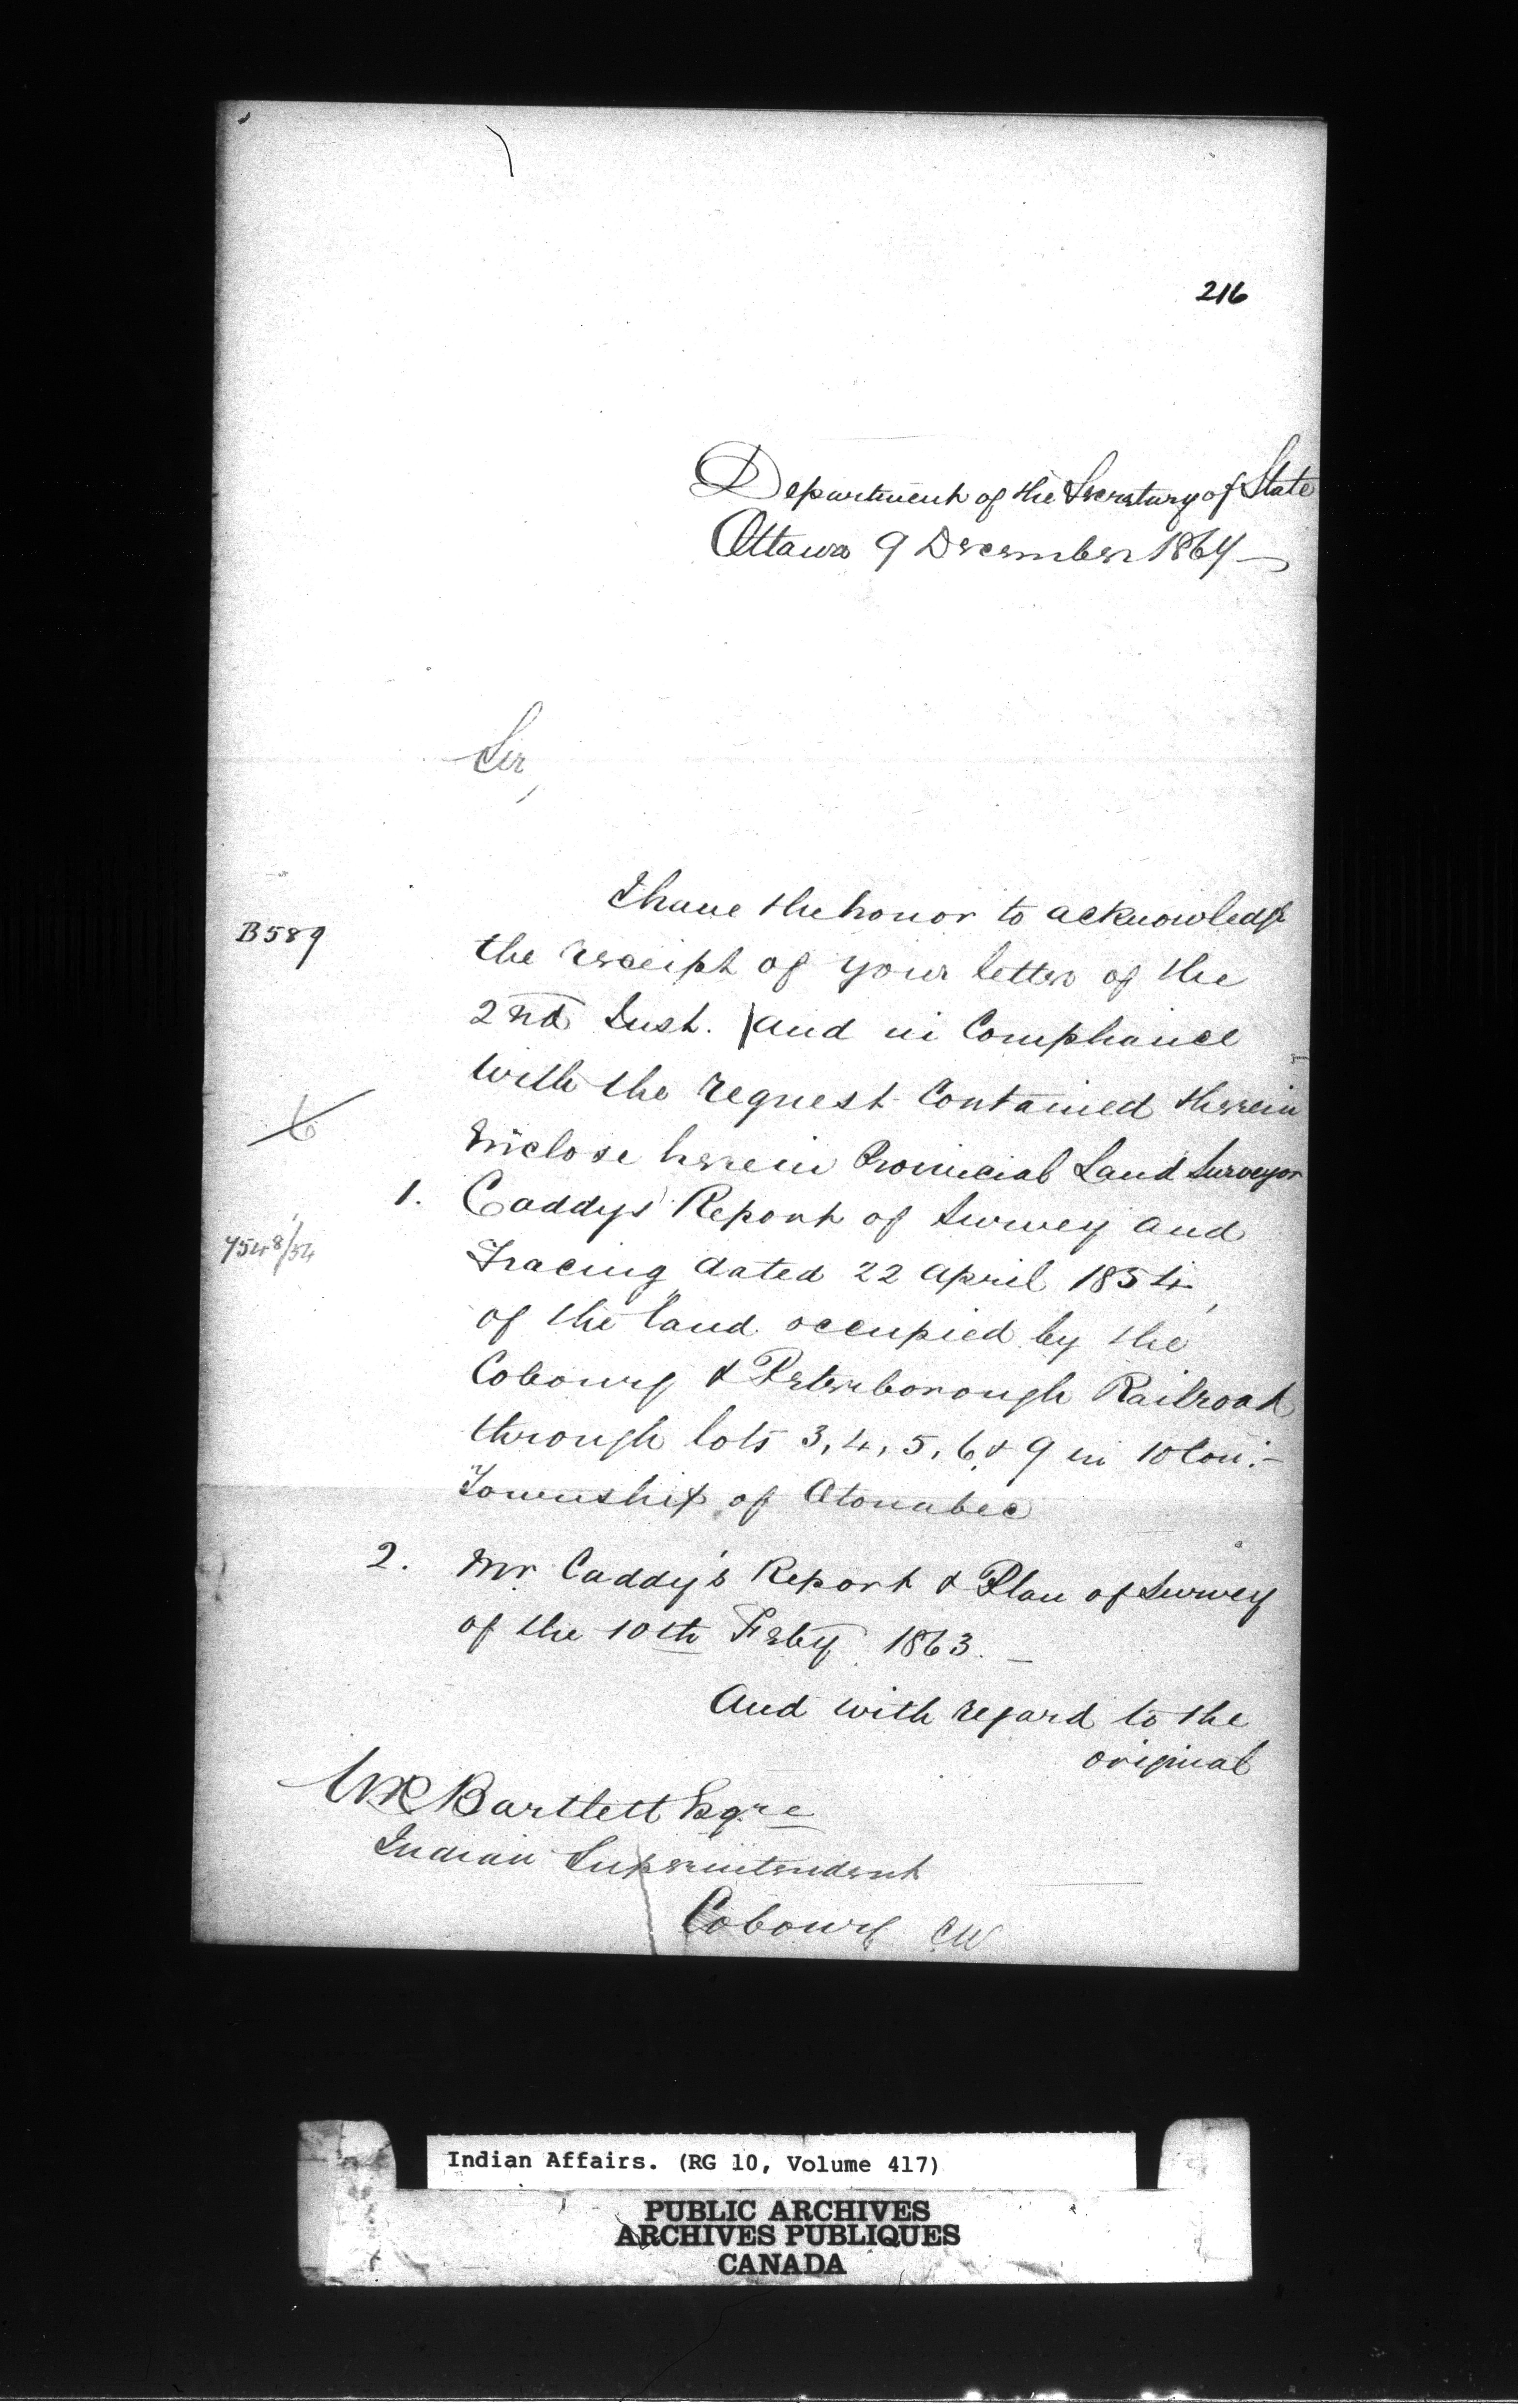 216
Department of the Secretary of State
Ottawa 9 December 1867
Sir,
I have the honor to acknowledge
B589
the receipt of your letter of the
2nd Inst. and in Compliance
with the request Contained therein
6
Enclose herein Provincial Land Surveyor
1. Caddys Report of Survey and
7548/54
Tracing dated 22 April 1854,
of the land occupied by the
Cobourg & Peterborough Railroad
through lots 3, 4, 5, 6 & 9 in 10 Con:-
Township of Otonabee
2. Mr Caddy's Report & Plan of Survey
of the 10th Feby 1863. -
And with regard to the
original
Bartlett Esqre
Indian Superintendent
Cobourg CW
Indian Affairs. (RG 10, Volume 417)
PUBLIC ARCHIVES
ARCHIVES PUBLIQUES
CANADA